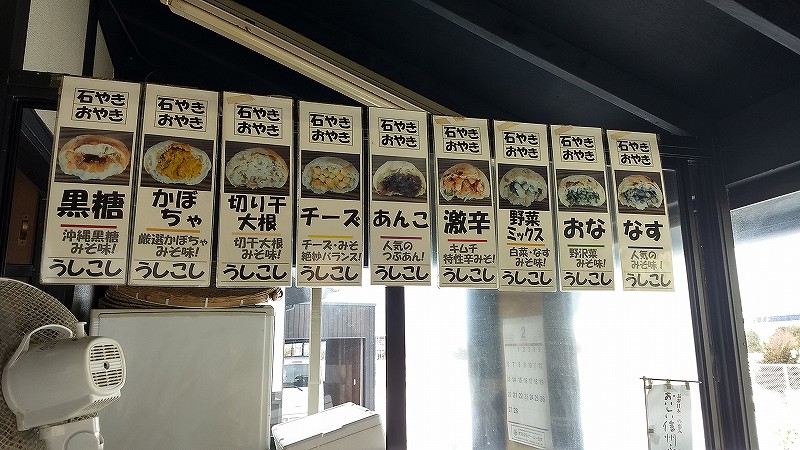 石やき
おやき
黒糖
沖縄黒糖
みそ味!
うしこし
石やき
おやき
かぼ
ちゃ
厳選かぼちゃ
みそ味!
うしこし
石やき
おやき
切り干
大根
切干大根
みそ味!
うしこし
石やき
おやき
チーズ
チーズ・みそ
絶妙バランス!
うしこし
石やき
おやき
あんこ
人気の
つぶあん!
うしこし
石やき
おやき
激辛
キムチ
特性辛みそ!
うしこし
石やき
おやき
野菜
ミックス
白菜・なす
みそ味!
うしこし
石やき
おやき
おな
野沢菜
みそ味!
うしこし
石やき
おやき
なす
人気の
みそ味!
うしこし
2